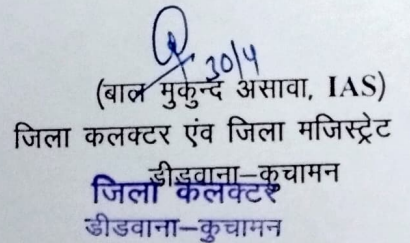 30/4
(बाल मुकुन्द असावा, IAS)
जिला कलक्टर एंव जिला मजिस्ट्रेट
डीडवाना–कुचामन
जिला कलक्टर
डीडवाना–कुचामन